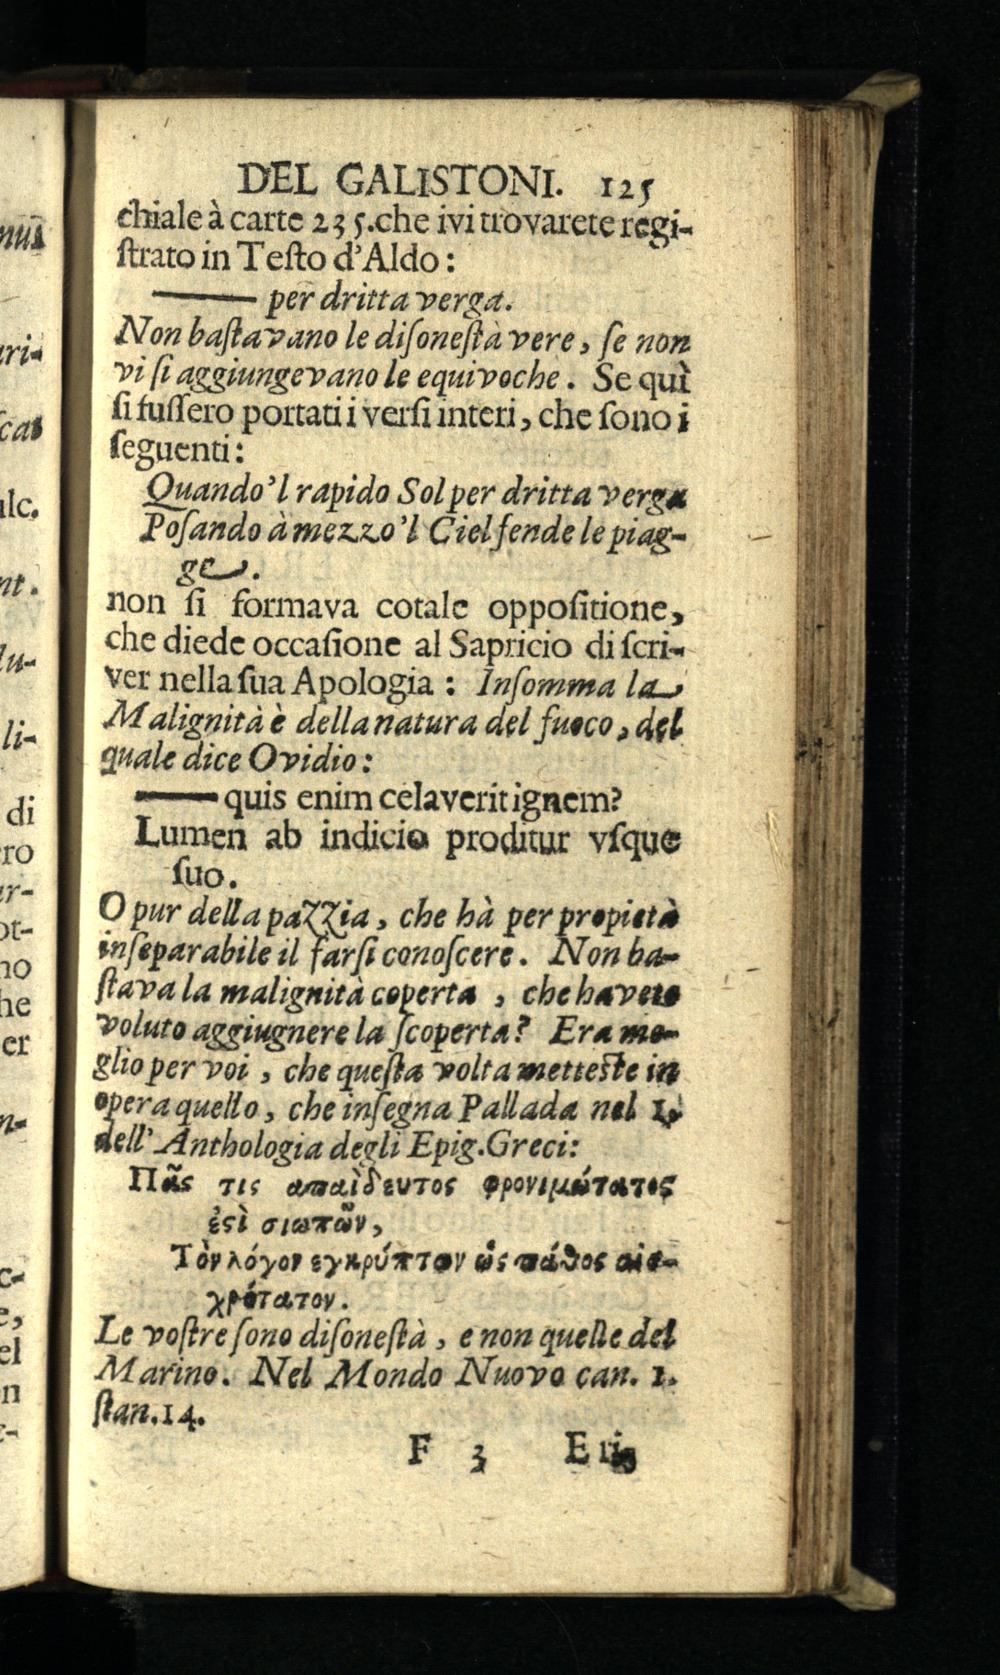 DEL GALISTONI. 125
chiale à carte 235.che ivi trovarete regi-
ſtrato in Teſto d'Aldo:
—— per dritta verga.
Non baſtavano le diſoneſtà vere, ſe non
vi ſi aggiungevano le equivoche. Se quì
ſi fuſſero portati i verſi interi, che ſono i
ſeguenti:
Quando'l rapido Sol per dritta verga
Poſando à mezzo'l Ciel fende le piag-
ge.
non ſi formava cotale oppoſitione,
che diede occaſione al Sapricio di ſcri-
ver nella ſua Apologia: Inſomma la
Malignità è della natura del fuoco, del
quale dice Ovidio:
—— quis enim celaverit ignem?
Lumen ab indicio proditur vſque
ſuo.
O pur della pazzia, che hà per propietà
inſeparabile il farſi conoſcere. Non ba-
ſtava la malignità coperta, che havete
voluto aggiugnere la ſcoperta? Era me-
glio per voi, che queſta volta metteſte in
opera quello, che inſegna Pallada nel 1.
dell' Anthologia degli Epig.Greci:
Πᾶς τις απαὶδευτος φρονιμώτατος
ἐςὶ σιωπῶν,
Τὸν λόγον εγκρύπτων ὡς πάθος αἰσ-
χρότατον.
Le voſtre ſono diſoneſtà, e non quelle del
Marino. Nel Mondo Nuovo can. 1.
ſtan.14.
F 3 Eri,
nus
ari-
ſcas
ulc.
nt.
lu-
li-
di
ro
ar-
ot-
no
he
er
n-
c-
e,
el
n